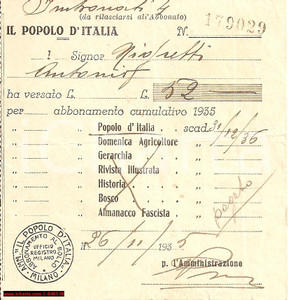 (da rilasciarsi all'Abbonato)
179029
IL POPOLO D'ITALIA N.
Il Signor
Antonio
ha versato L. £. 52 —
per abbonamento cumulativo 1935
Popolo d'Italia scad. 31/12/36
Domenica Agricoltore
Gerarchia
Rivista Illustrata
Historia
Bosco
Almanacco Fascista
pagato
26/11/ 193 5
p. l'Amministrazione
AMM. IL POPOLO D'ITALIA
ABBONAMENTO AL BOLLO
UFFICIO REGISTRO MILANO
MILANO